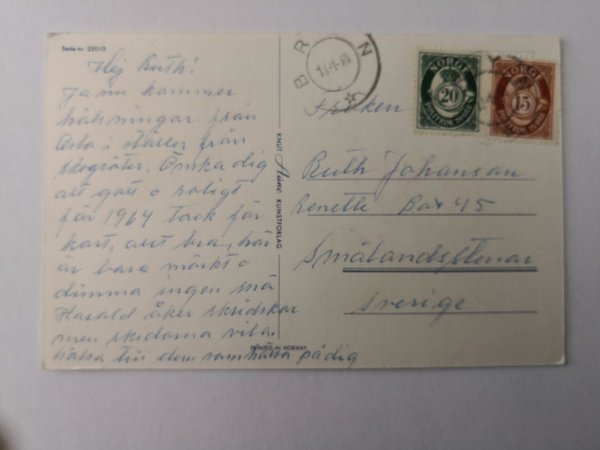 Serie nr. 220/3
Hej Ruth!
Ja nu kommer
hälsningar från
Oslo i stället från
. Önska dig
allt gott o roligt
för 1964 Tack för
kort, allt bra, här
är bara mörkt o
dimma ingen snö
Harald åker skridskor
men skidorna vila.
hälsa till dem som hälsa på dig
KNUT Aune KUNSTFORLAG
PRINTED IN NORWAY
BR N
NORGE
20
NORGE
15
Fröken
Ruth Johansan
Box 45
Smålandsstenar
Sverige